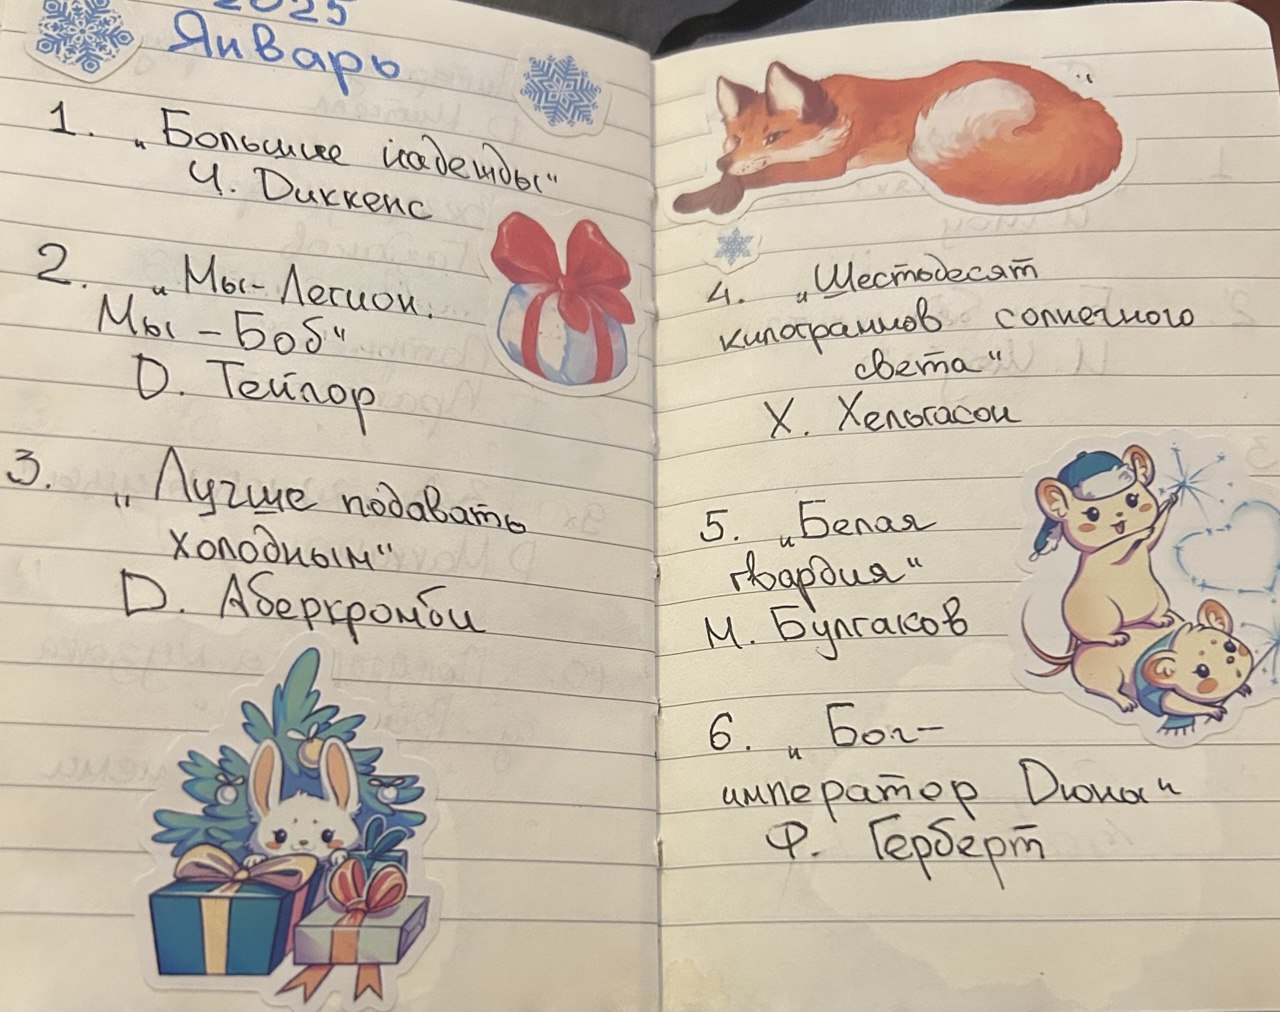 2025
Январь
1. „Большие надежды“
Ч. Диккенс
2. „Мы-Легион.
Мы-Боб“
D. Тейлор
3. „Лучше подавать
холодным“
D. Аберкромби
4. „Шестьдесят
килограммов солнечного
света“
Х. Хельгасон
5. „Белая
гвардия“
М. Булгаков
6. „Бог-
император Dюны“
Ф. Герберт